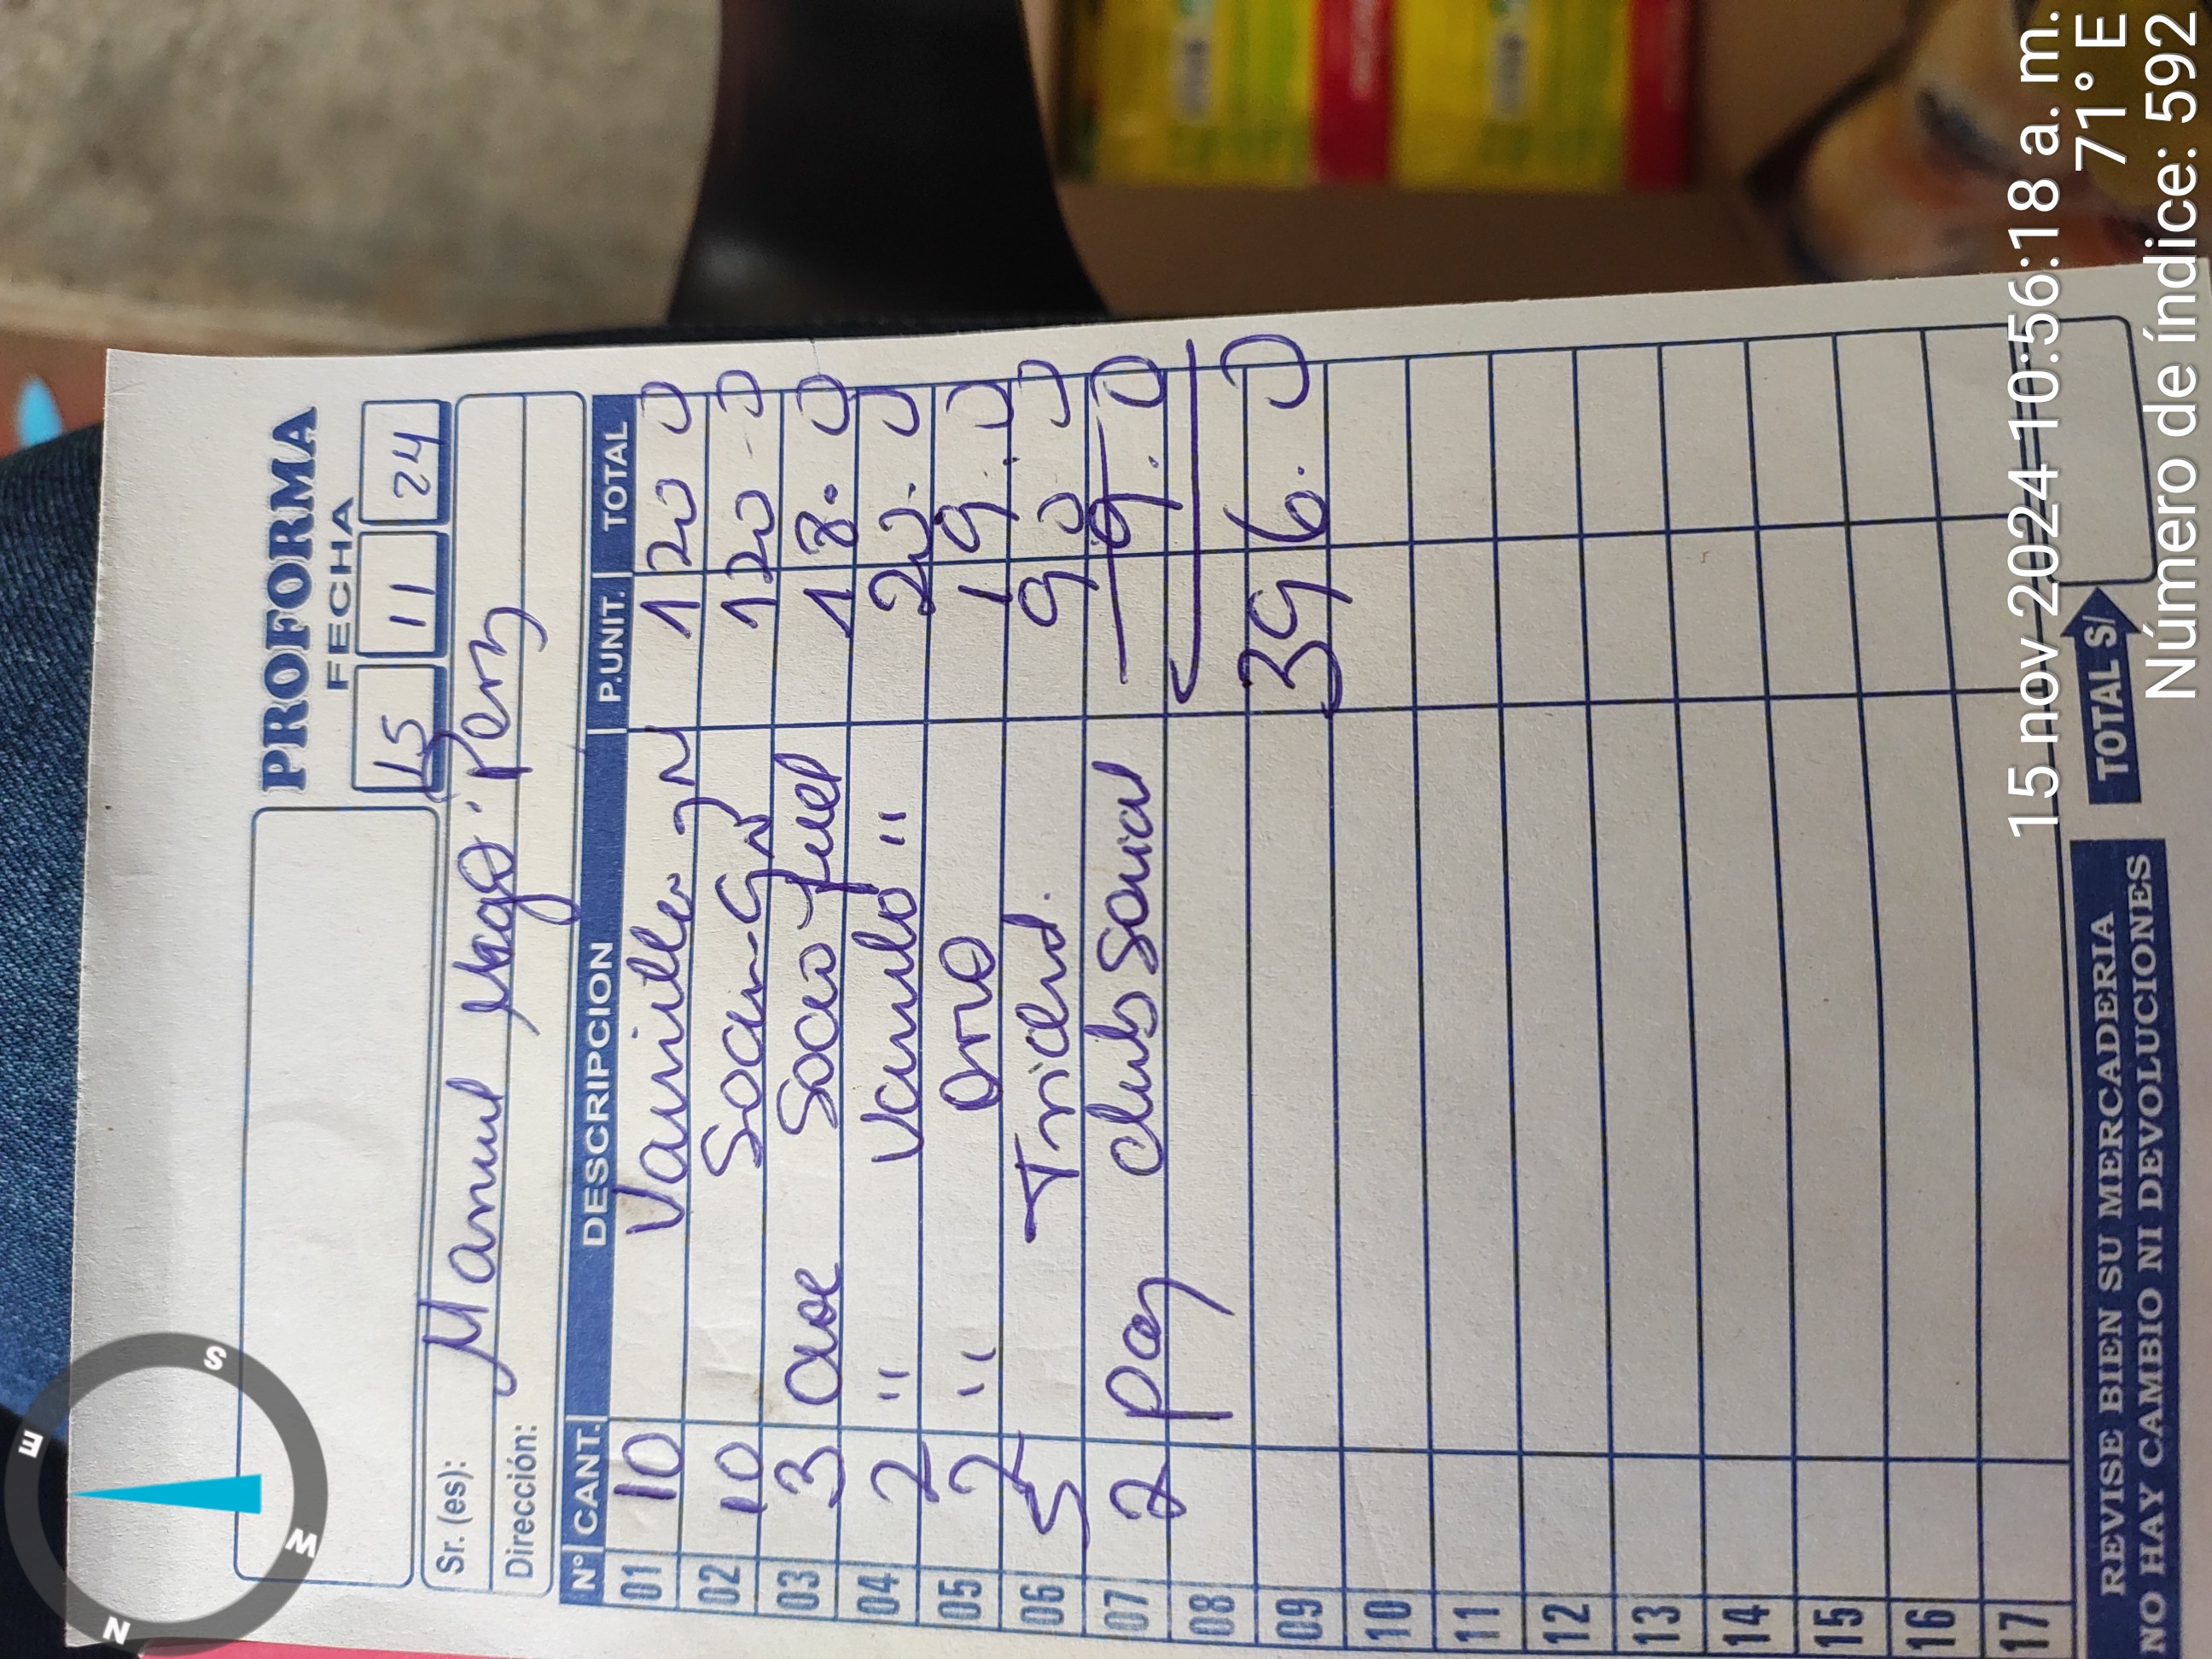 N
E
S
W
PROFORMA
FECHA
15 11 24
Sr. (es): Manuel
Dirección:
N° CANT. DESCRIPCION P.UNIT. TOTAL
01 10 Vainilla gN 120 0
02 10 GN 120 - 0
03 3 Soda fuel 18. 0
04 2 " " 20. 0
05 2 " Oreo 19. 0
06 5 90 0
07 2 paq club social 9. 0
08
09 396. 0
10
11
12
13
14
15
16
17
REVISE BIEN SU MERCADERIA
NO HAY CAMBIO NI DEVOLUCIONES
TOTAL S/
15 nov 2024 10:56:18 a. m.
71° E
Número de índice: 592